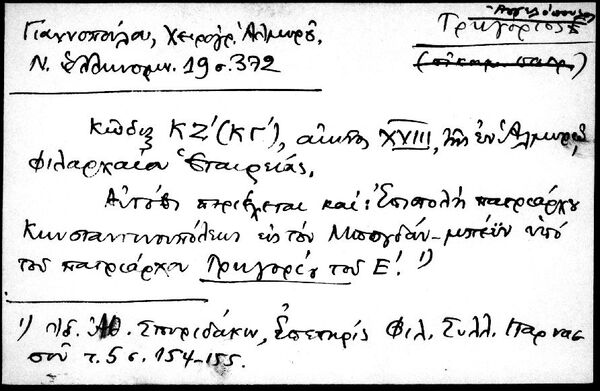 Γιαννοπούλου, Χειρόγρ. Αλμυρού.
Ν. Ἑλληνομν. 19 σ. 372
Γρηγόριος Ε΄
Κῶδιξ ΚΖ΄ (ΚΓ΄), αἰῶνος XVIII, τῆς ἐν Ἁλμυρῷ
Φιλαρχαίου Ἑταιρείας.
Αὐτόθι περιέχεται καί: Ἐπιστολή πατριάρχου
Κωνσταντινουπόλεως εἰς τόν Μπογδάν-μπέϊν ὑπό
τοῦ πατριάρχου Γρηγορίου τοῦ Ε΄. 1)
1) Πβ. Ἀθ. Σπυριδάκη, Ἐπετηρίς Φιλ. Συλλ. Παρνασ
σοῦ τ. 5 σ. 154-155.